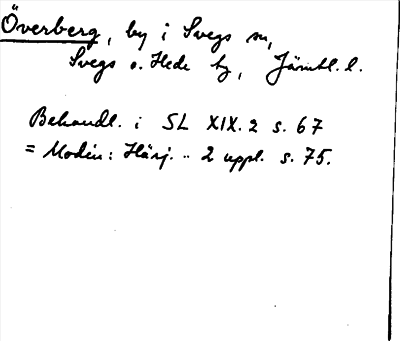 Överberg, by i Svegs sn,
Svegs o. Hede tg, Jämtl. l.
Behandl. i SL XIX. 2 s. 67
= Modin: Härj. .. 2 uppl. s. 75.